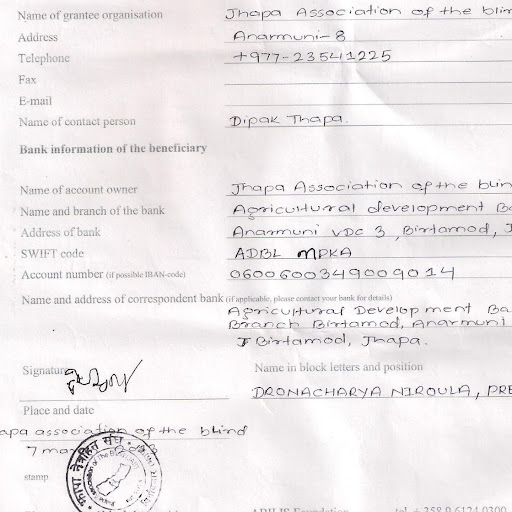 Name of grantee organisation Jhapa Association of the blin
Address Anarmuni-8
Telephone +977-23541225
Fax
E-mail
Name of contact person Dipak Thapa.
Bank information of the beneficiary
Name of account owner Jhapa Association of the blin
Name and branch of the bank Agricultural development Ba
Address of bank Anarmuni VDC 3, Birtamod, J
SWIFT code ADBL MPKA
Account number (if possible IBAN-code) 0600600349009014
Name and address of correspondent bank (if applicable, please contact your bank for details)
Agricultural Development Ba
Branch Birtamod, Anarmuni
Birtamod, Jhapa.
Signature Name in block letters and position
DRONACHARYA NIROULA, PRE
Place and date
apa association of the blind
7 ma
stamp
झापा नेत्रहीन संघ
Foundation tel. + 358 9 6124 0300